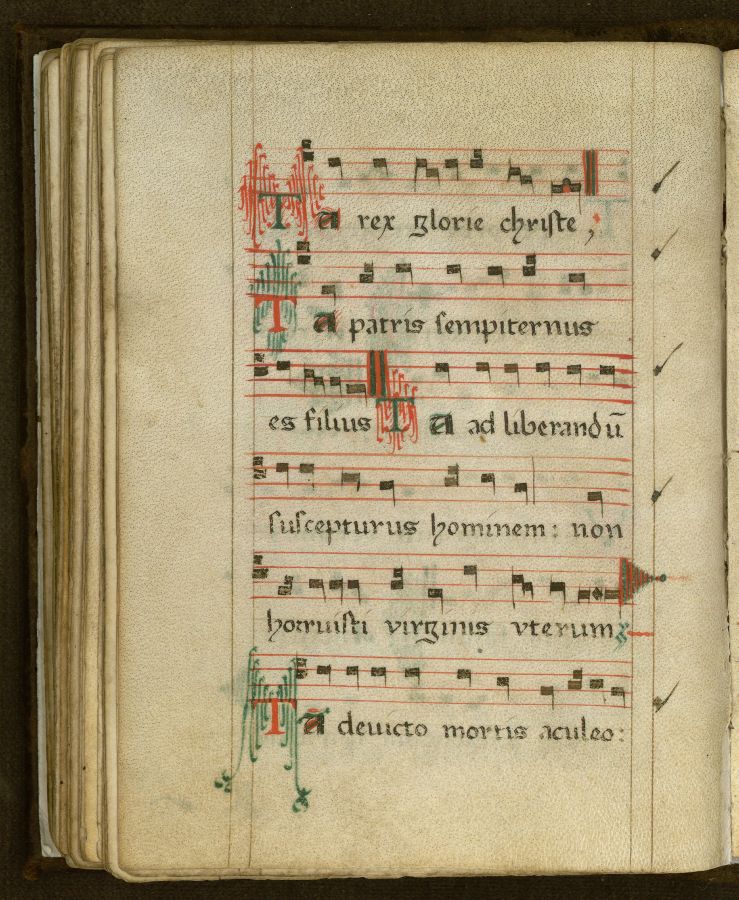 Tu rex glorie chriſte,
Tu patris ſempiternus
es filius Tu ad liberandū
ſuſcepturus hominem: non
horruiſti virginis vterum;
Tu deuicto mortis aculeo: